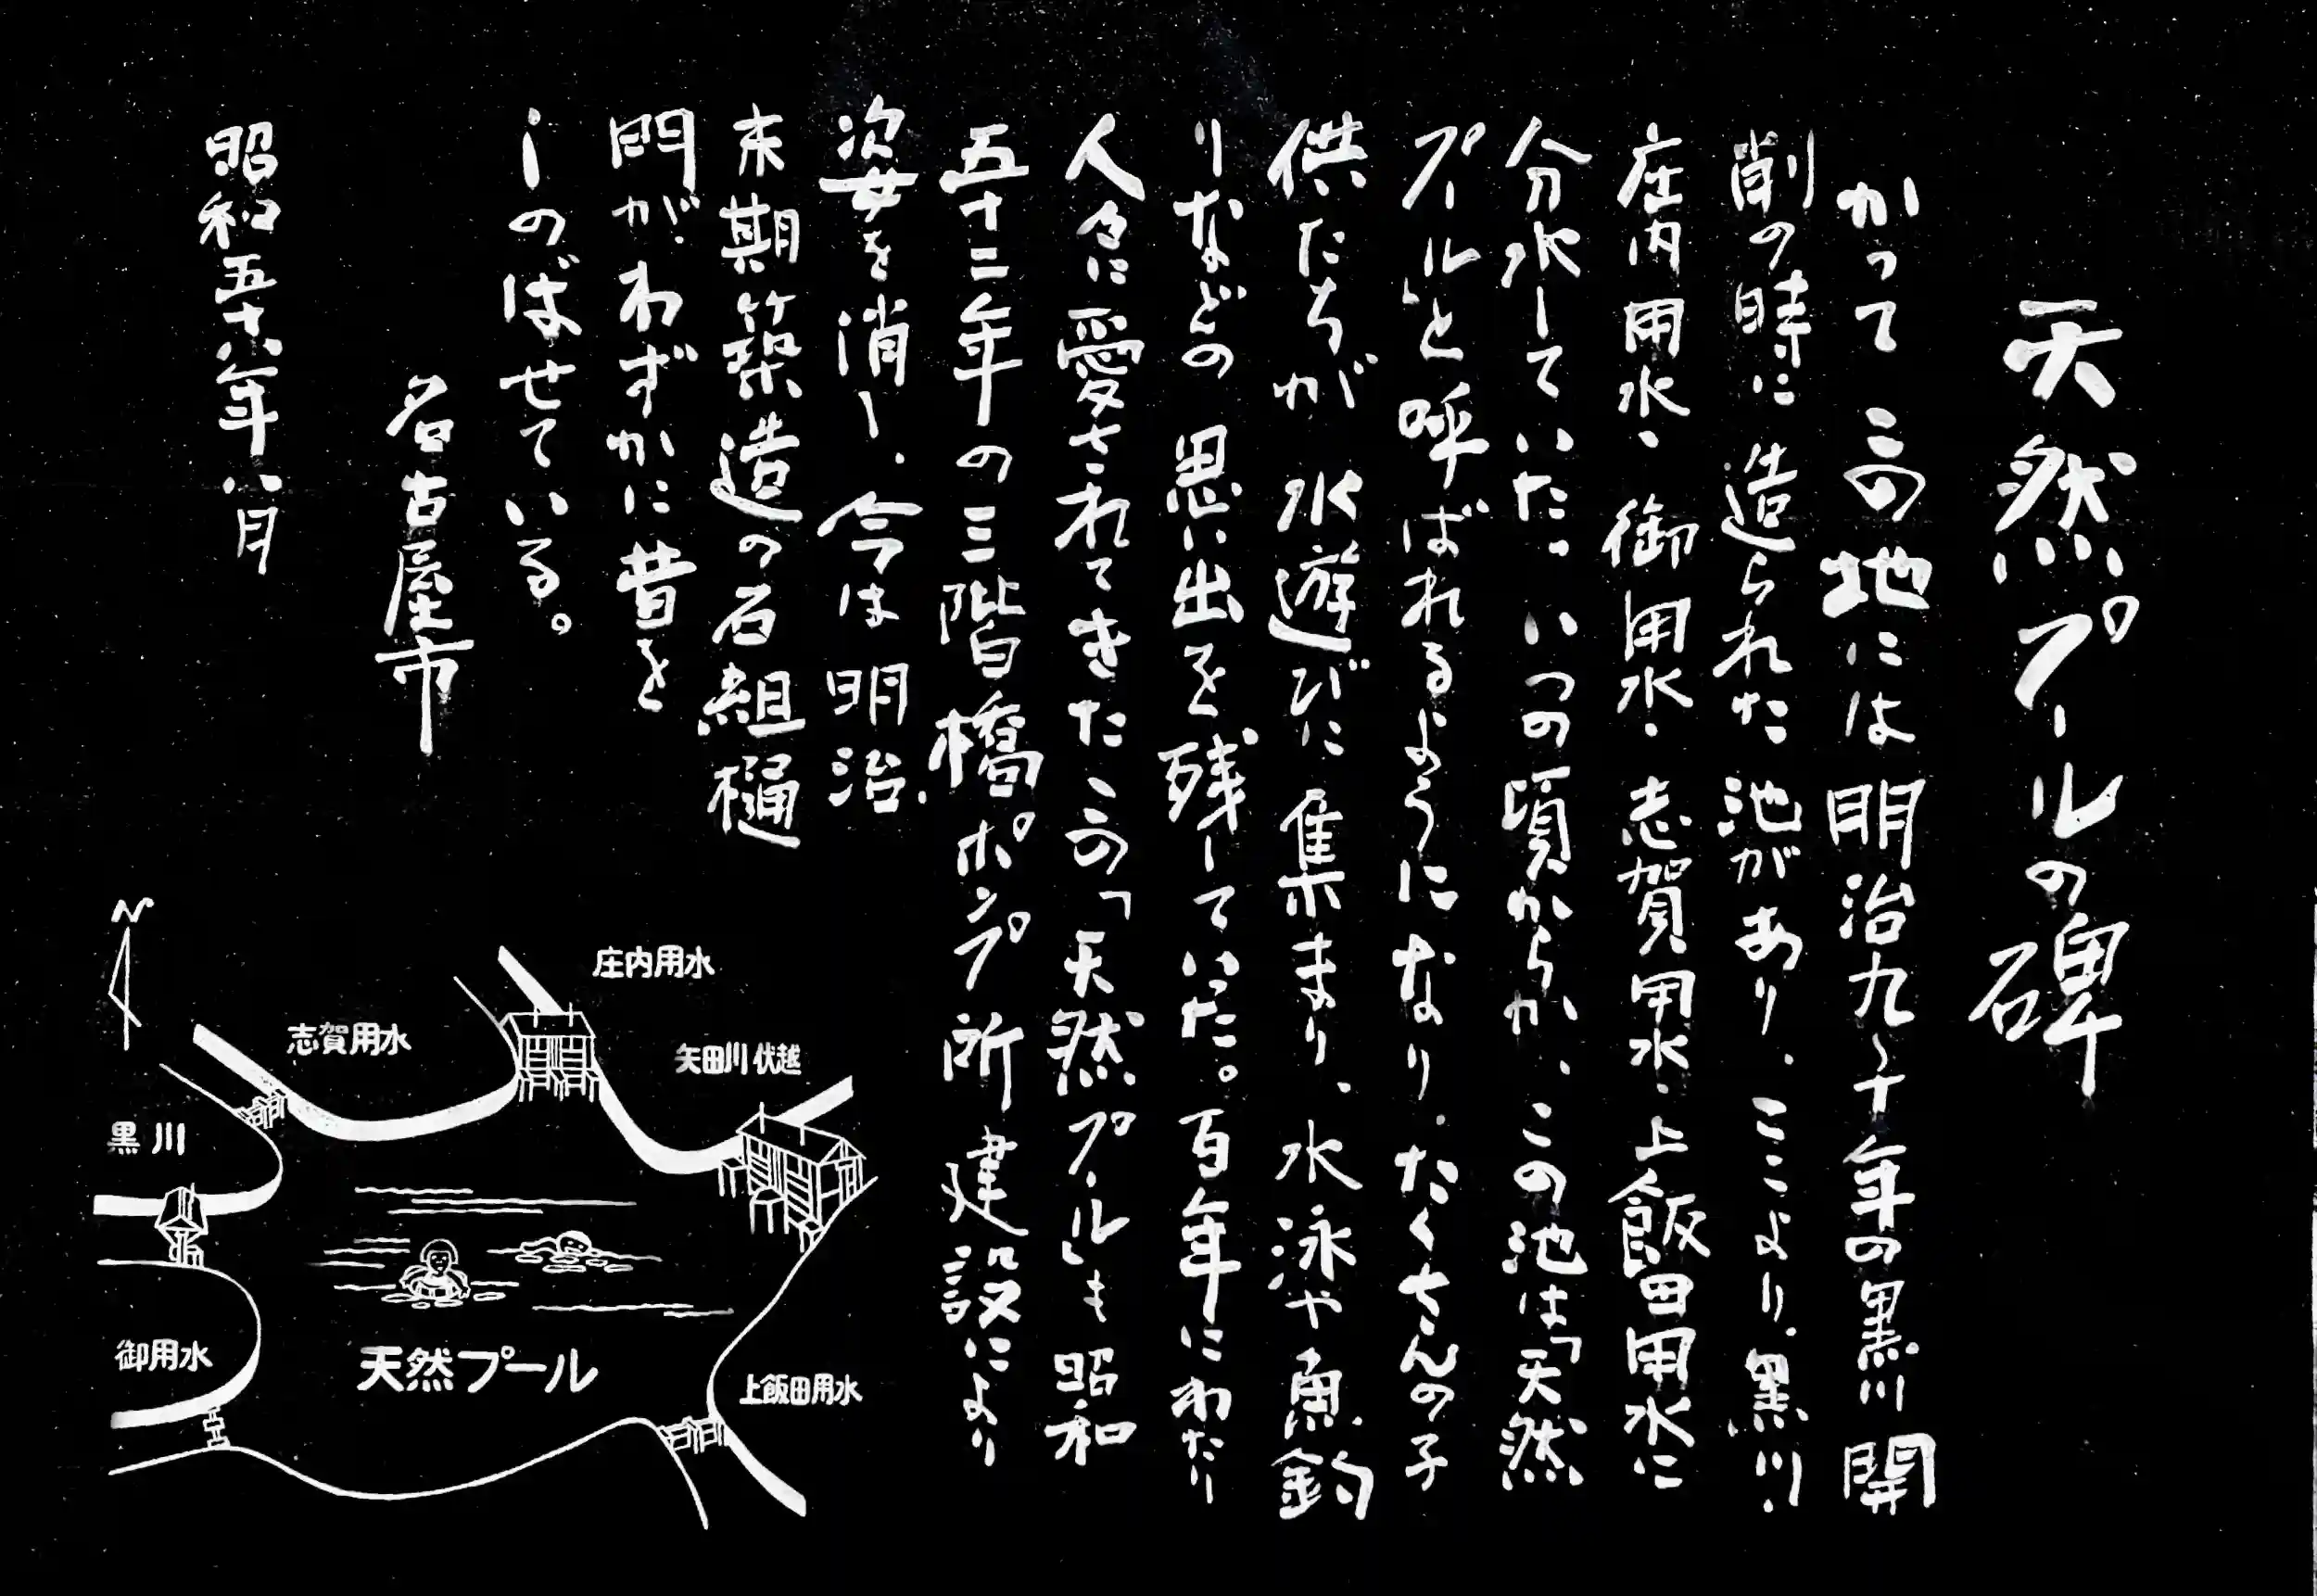 天然プールの碑
かって この地には 明治九〜十年の黒川 開
削の時に 造られた 池があり、ここより、黒川・
庄内用水・御用水・志賀用水・上飯田用水に
分水していた。いつの頃からか、この池は「天然
プール」と呼ばれるようになり、たくさんの子
供たちが 水遊びに 集まり、水泳や魚釣
りなどの 思い出を残していた。百年にわたり
人々に愛されてきたこの「天然プール」も 昭和
五十二年の三階橋ポンプ所建設により
姿を消し、今は 明治
末期築造の石組樋
門が、わずかに昔を
しのばせている。
名古屋市
昭和五十八年八月
N
庄内用水
志賀用水
矢田川伏越
黒川
御用水
天然プール
上飯田用水